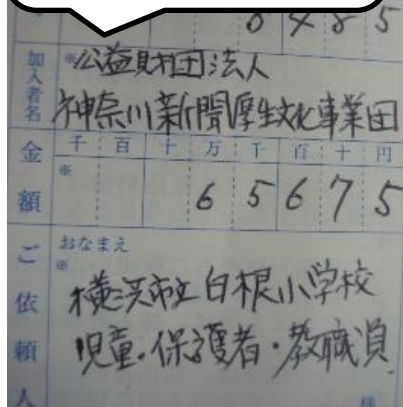 8485
加入者名
※公益財団法人
神奈川新聞厚生文化事業団
金額
千百十万千百十円
※
65675
ご依頼人
おなまえ
※
横浜市立白根小学校
児童・保護者・教職員
様